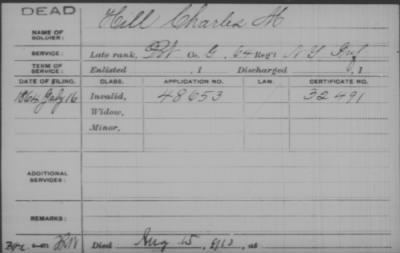 DEAD
NAME OF SOLDIER: Hill Charles M
SERVICE: Late rank, Co. G, 64 Reg't N Y Inf
TERM OF SERVICE: Enlisted , 1 Discharged , 1
DATE OF FILING. CLASS. APPLICATION NO. LAW. CERTIFICATE NO.
1864 July 16 Invalid, 48653 32491
Widow,
Minor,
ADDITIONAL SERVICES:
REMARKS:
Died Aug 15, at